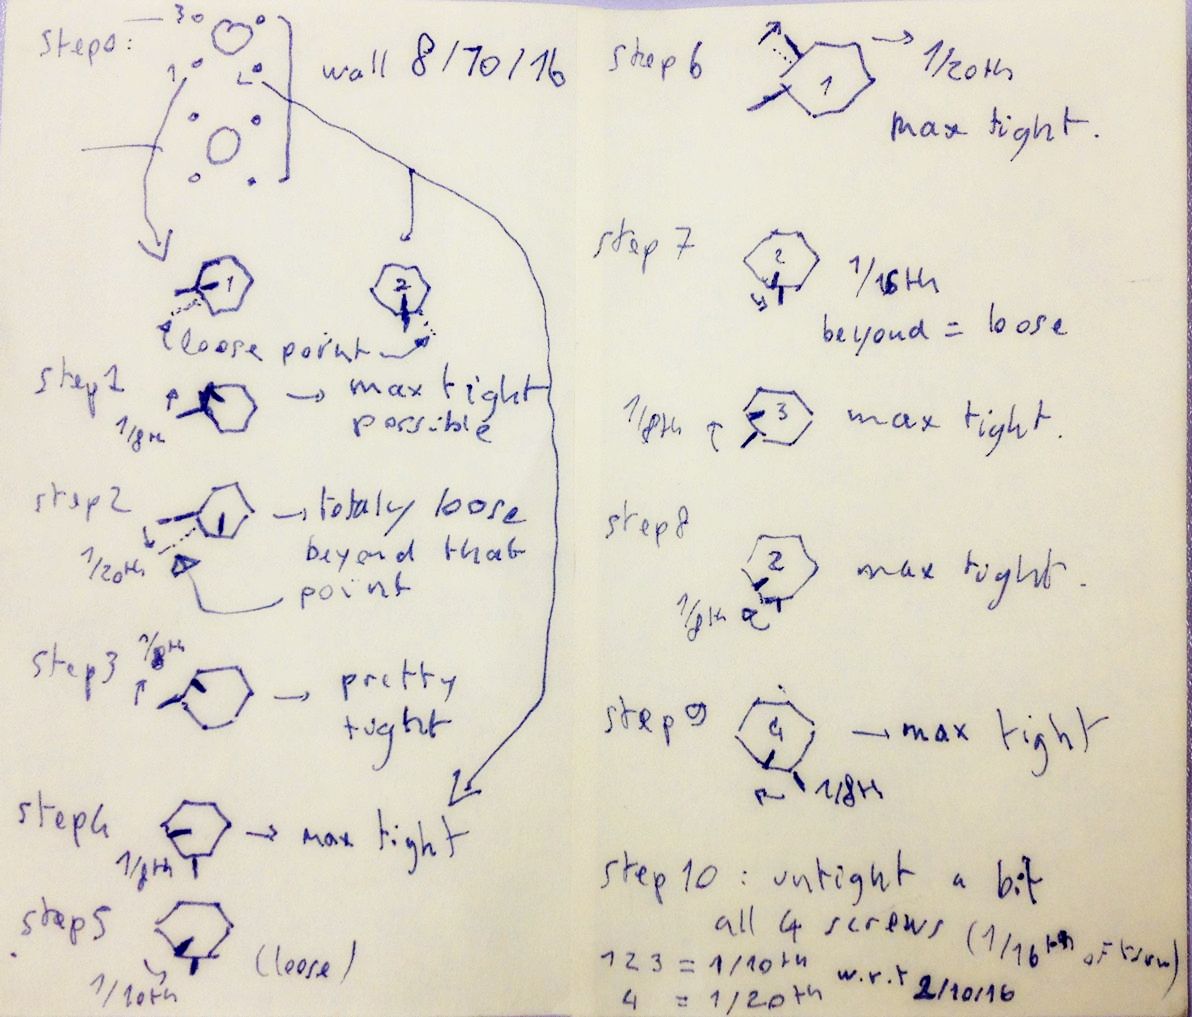 step0:
3
1 2
wall 8/10/16
1 2
loose point
step1
1/8th
→ max tight
possible
step2
1/20th
→ totaly loose
beyond that
point
step3
1/8th
→ pretty
tight
step4
1/8th
→ max tight
step5
1/10th
(loose)
step 6
1
→ 1/20th
max tight.
step 7
2
1/16th
beyond = loose
1/8th
3
max tight.
step8
2
1/8th
max tight.
step 9
4
→ max tight
1/8th
step 10 : untight a bit
all 4 screws (1/16th of turn)
1 2 3 = 1/10th w.r.t 2/10/16
4 = 1/20th